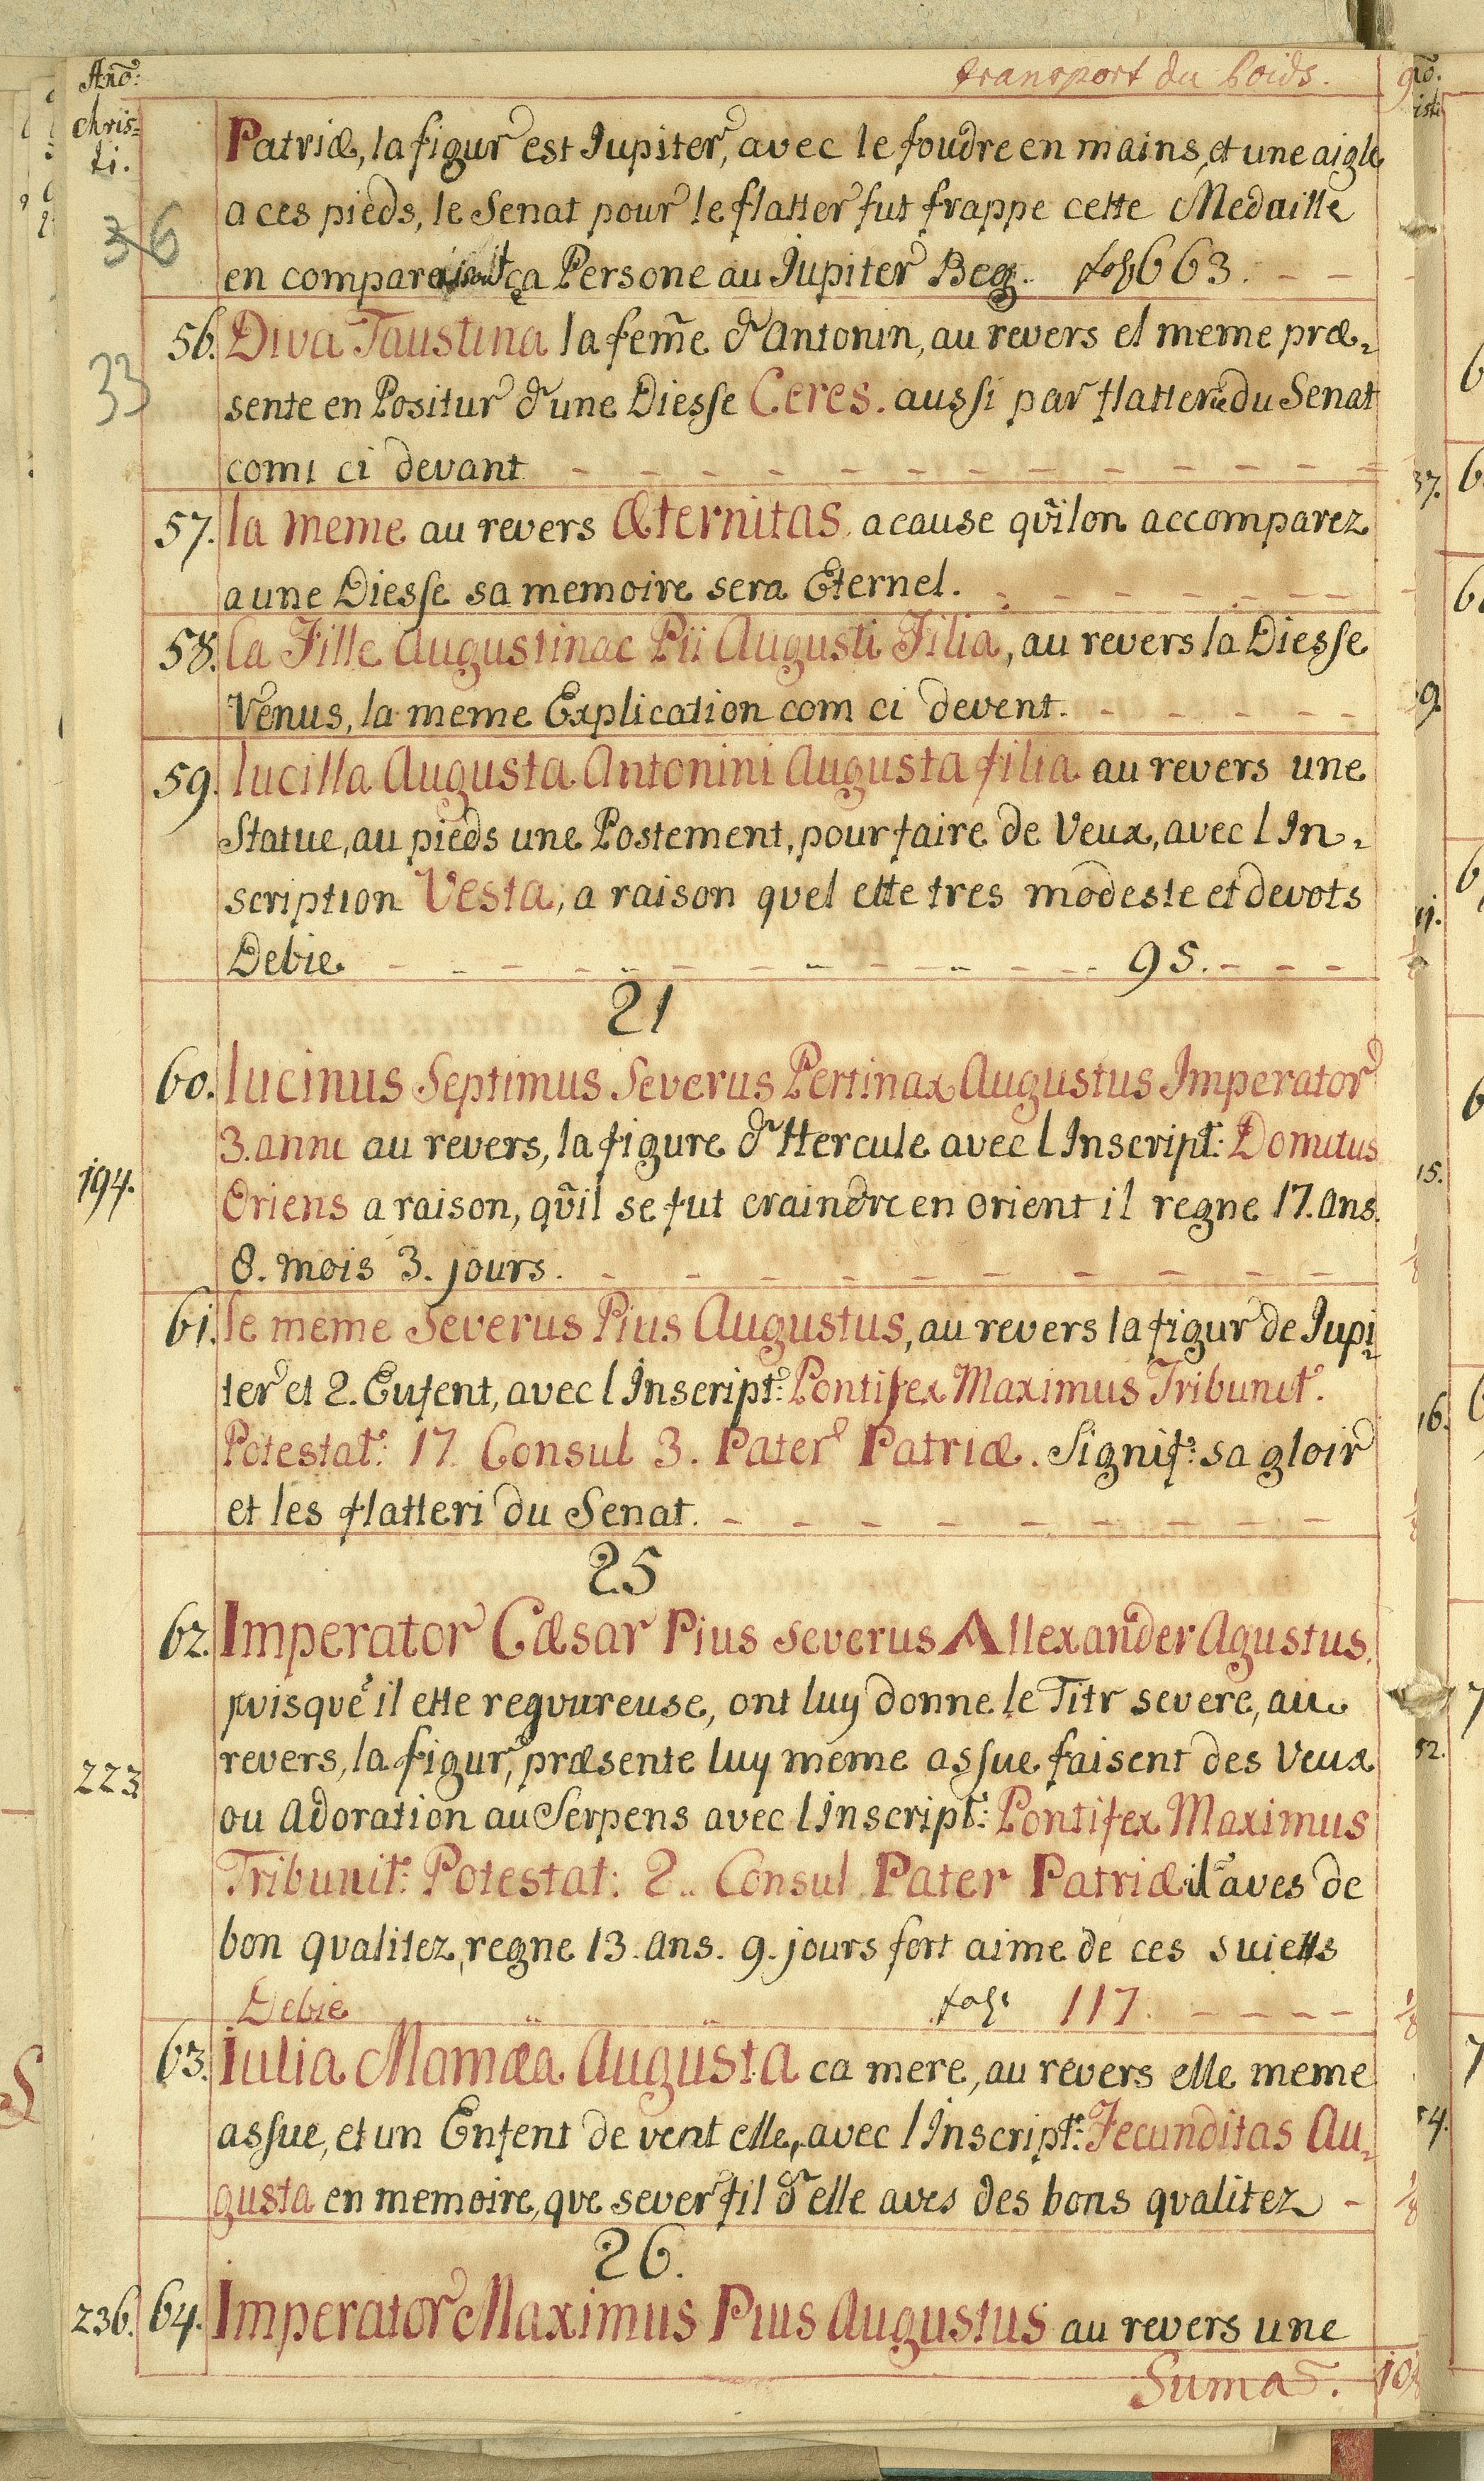 Año:
chris=
ti.
transport du Poids.
Patriæ, la figur est Jupiter, avec le foudre en mains, et une aigle
a ces pieds, le Senat pour le flatter fut frappe cette Medaille
36
en ça Persone au Jupiter Beg. fol 663.
56. Diva Faustina la feme d'Antonin, au revers el meme præ=
33
sente en Positur d'une Diesse Ceres. aussi par flatterie du Senat
comi ci devant
57. la meme au revers Æternitas, a cause qu'ilon accomparez
a une Diesse sa memoire sera Eternel.
58. la Fille Augustinae Pii Augusti Filia, au revers la Diesse
Venus, la meme Explication com ci devent.
59. lucilla Augusta Antonini Augusta filia au revers une
Statue, au pieds une Postement, pour faire de Veux, avec l In=
scription Vesta, a raison quel ette tres modeste et devots
Debie 95.
21
60. lucinus Septimus Severus Pertinax Augustus Imperator
3. anni au revers, la figure d'Hercule avec l Inscript: Domitus
194. Oriens a raison, qu'il se fut craindre en orient il regne 17. ans.
8. mois 3. jours.
61. le meme Severus Pius Augustus, au revers la figur de Jupi=
ter et 2. Enfent, avec l Inscript: Pontifex Maximus Tribunit:
Potestat: 17. Consul 3. Pater Patriæ. Signif: sa gloir
et les flatteri du Senat.
25
62. Imperator Cæsar Pius Severus Allexander Agustus.
puisque il ette regvureuse, ont luy donne le Titr severe, au
revers, la figur, præsente luy meme assue faisent des Veux
223
ou adoration au Serpens avec l Inscript: Pontifex Maximus
Tribunit: Potestat: 2.. Consul Pater Patriæ il aves de
bon qvalitez, regne 13. ans. 9. jours fort aime de ces suietts
Debie fol: 117.
63. Iulia Mamæa Augusta ca mere, au revers elle meme
assue, et un Enfent devent elle, avec l Inscript: Fecunditas Au=
gusta en memoire, que sever fil d'elle aves des bons qvalitez
26.
236. 64. Imperator Maximus Pius Augustus au revers une
Suma.